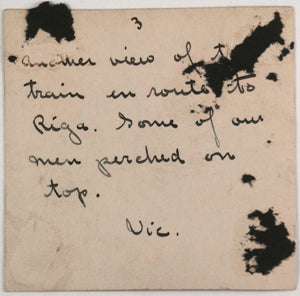 3
another view of t
train en route to
Riga. Some of our
men perched on
top.
Vic.